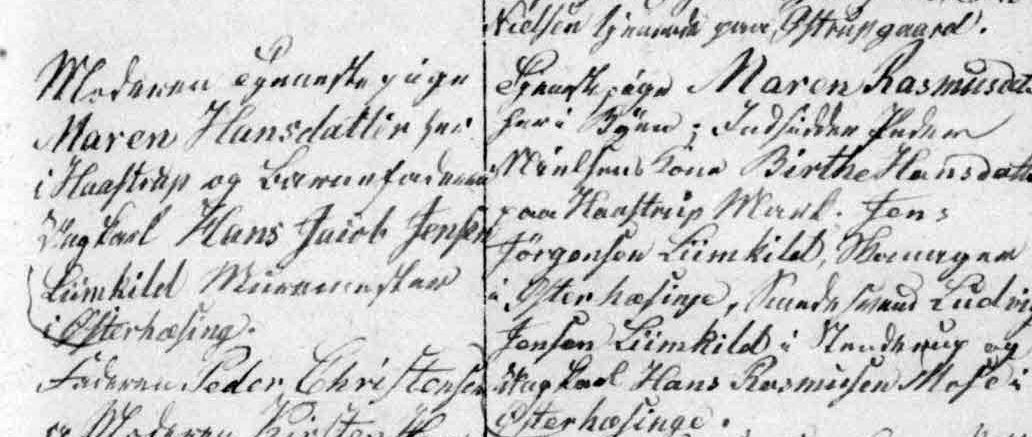 Moderen Tjenestepige
Maren Hansdatter her
i Haastrup og Barnefaderen
Ungkarl Hans Jacob Jensen
Liimkild Muurmester
i Østerhæsing.
Faderen Peder Christensen
og Moderen Kirsten
Nielsen tjenende paa Østrupgaard.
Tjenestepige Maren Rasmusdat
her i Byen; Indsidder Peder
Nielsens Kone Birthe Hansdatt
paa Haastrup Mark. Jens
Jørgensen Liimkild, Skomager
i Østerhæsinge, Ludvig
Jensen Liimkild i og
Ungkarl Hans Rasmusen Mose i
Østerhæsinge.